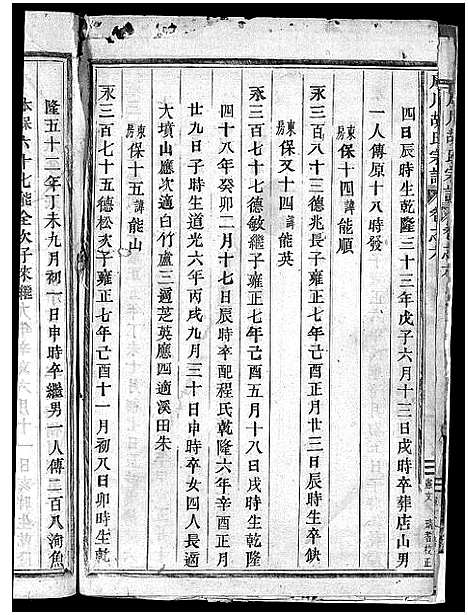 胡氏宗譜
四日辰時生乾隆三十三年戊子六月十三日戌時卒葬店山男
一人傳原十八時發
東房保十四諱能順
永三百八十三德兆長子雍正七年己酉正月廿三日辰時生卒缺
東房保又十四諱能英
永三百七十七德敏繼子雍正七年己酉五月十八日戌時生乾隆
四十八年癸卯二月十七日戌時卒配程氏乾隆六年辛酉正月
廿九日子時生道光六年丙戌九月三十日申時卒女四人長適
大墳山應次適白竹盧三適芝英應四適溪田朱
東房保十五諱能山
永三百七十五德松次子雍正七年己酉十一月初八日卯時生乾
隆五十二年丁未九月初十日申時卒繼男一人傳二百八洵魚
本保六十七能全次子來繼